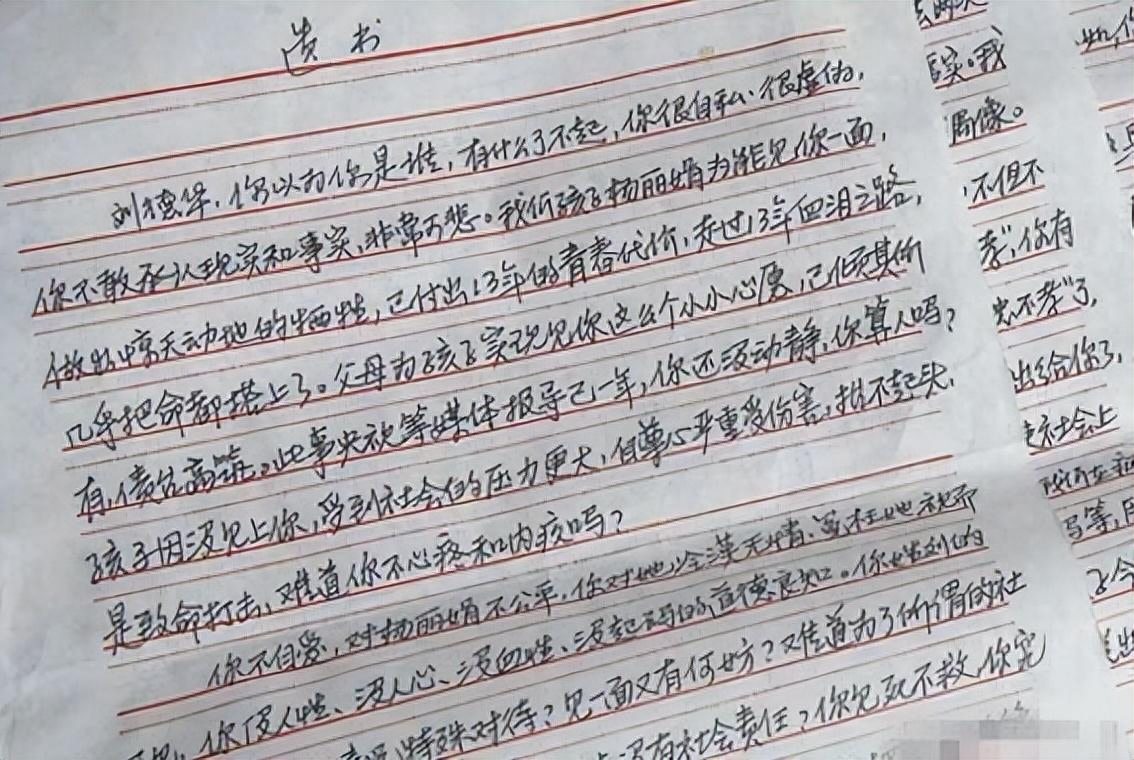 遗书
刘德华，你以为你是谁，有什么了不起，你很自私、很虚伪，
你不敢承认现实和事实，非常可悲。我们孩子杨丽娟为能见你一面，
做出惊天动地的牺牲，已付出13年的青春代价，走过13年血泪之路，
几乎把命都搭上了。父母为孩子实现见你这么个小小心愿，已倾其所
有，债台高筑。此事央视等媒体报导已一年，你还没动静，你算人吗？
孩子因没见上你，受到社会的压力更大，自尊心严重受伤害，抬不起头，
是致命打击，难道你不心疼和内疚吗？
你不自爱，对杨丽娟不公平，你对她
你没人性、没人心、没血性、没起码的道德良知。你姓刘的
特殊对待？见一面又有何妨？难道为了所谓的社
没有社会责任？你见死不救，你究
实。我
局像。
不但不
孝"，你有
不孝"了，
出给你了，
社会上
马等，